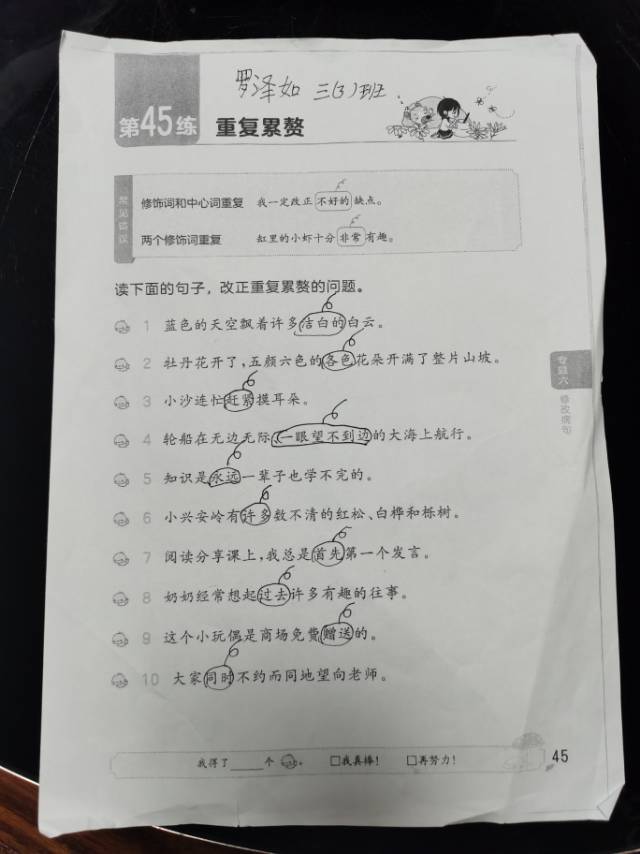 罗泽如 三(3)班
第45练 重复累赘
常见错误
修饰词和中心词重复 我一定改正不好的缺点。
两个修饰词重复 缸里的小虾十分非常有趣。
读下面的句子，改正重复累赘的问题。
1 蓝色的天空飘着许多洁白的白云。
2 牡丹花开了，五颜六色的各色花朵开满了整片山坡。
3 小沙连忙赶紧摸耳朵。
4 轮船在无边无际、一眼望不到边的大海上航行。
5 知识是永远一辈子也学不完的。
6 小兴安岭有许多数不清的红松、白桦和栎树。
7 阅读分享课上，我总是首先第一个发言。
8 奶奶经常想起过去许多有趣的往事。
9 这个小玩偶是商场免费赠送的。
10 大家同时不约而同地望向老师。
专题六 修改病句
我得了____个 。 □我真棒！ □再努力！
45